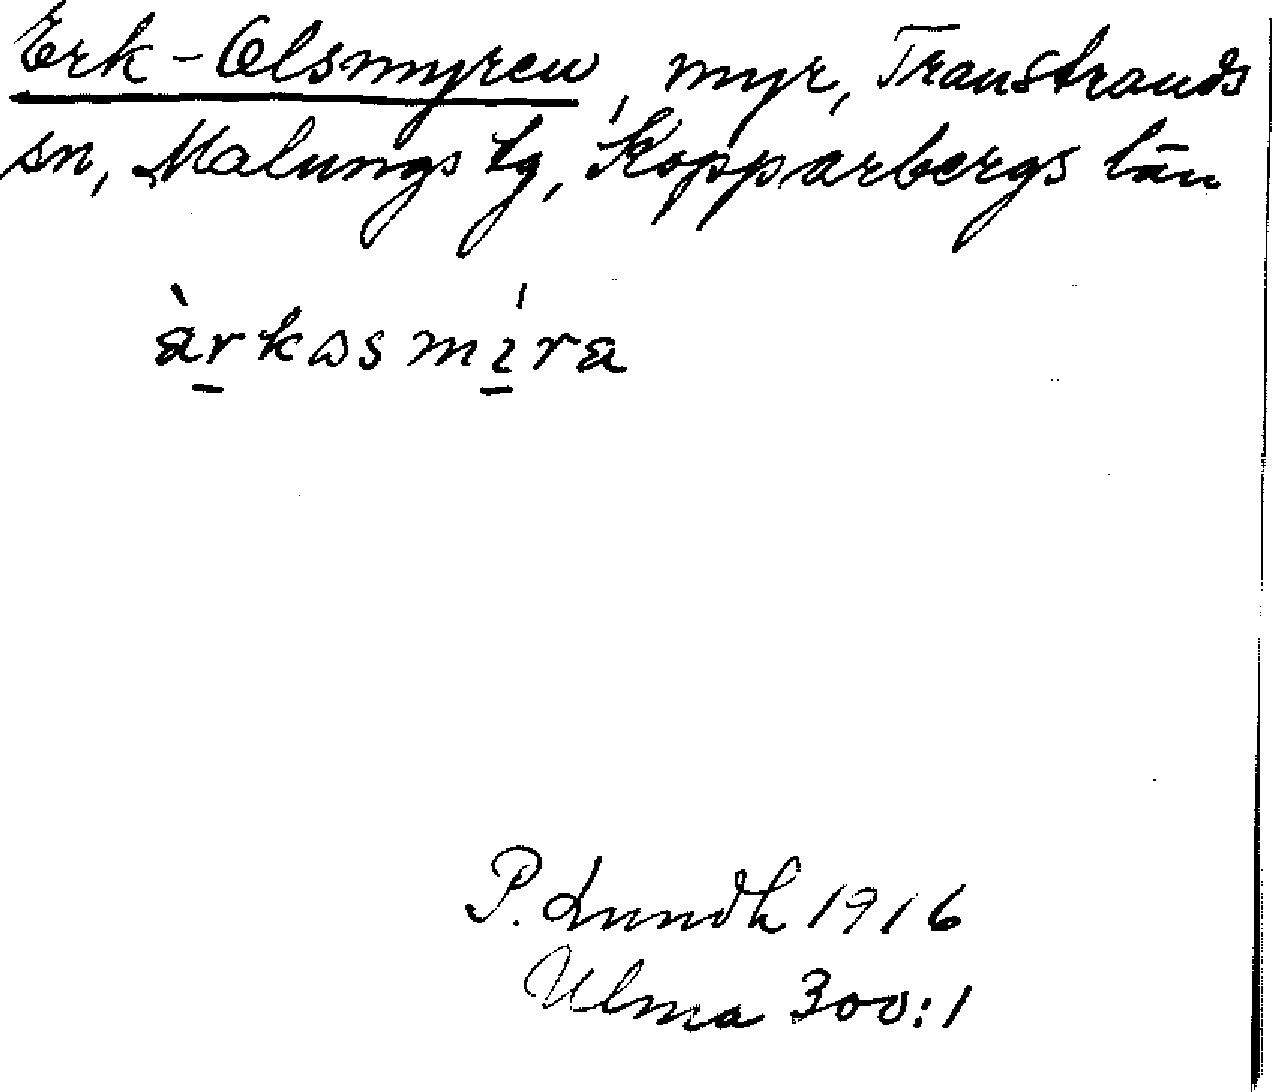 Erk-Olsmyren, myr, Transtrands
sn, Malungs tg, Kopparbergs län
àrkasmíra
P. Lundh 1916
Ulma 300:1